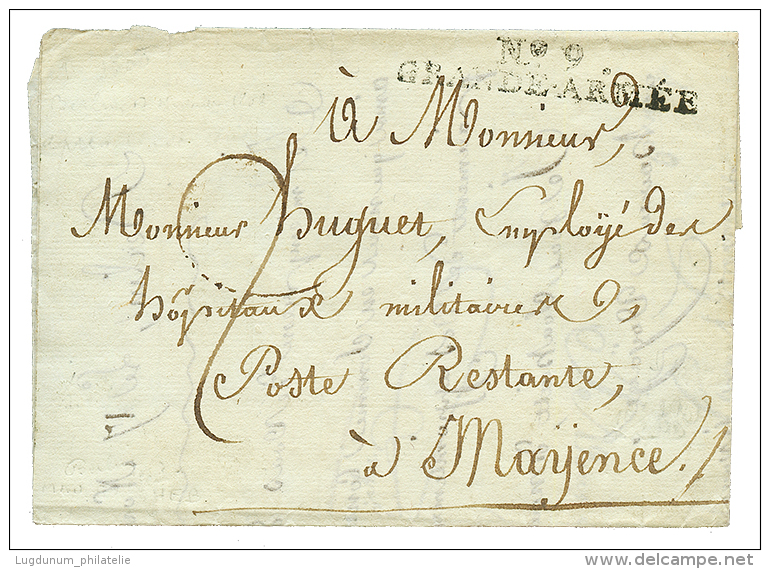 Nº 9
GRANDE-ARMÉE
à Monsieur,
Monsieur Huguet, Employé des
hôpitaux militaires,
Poste Restante,
à Maÿence.
Lugdunum_philatelie
delcampe.net